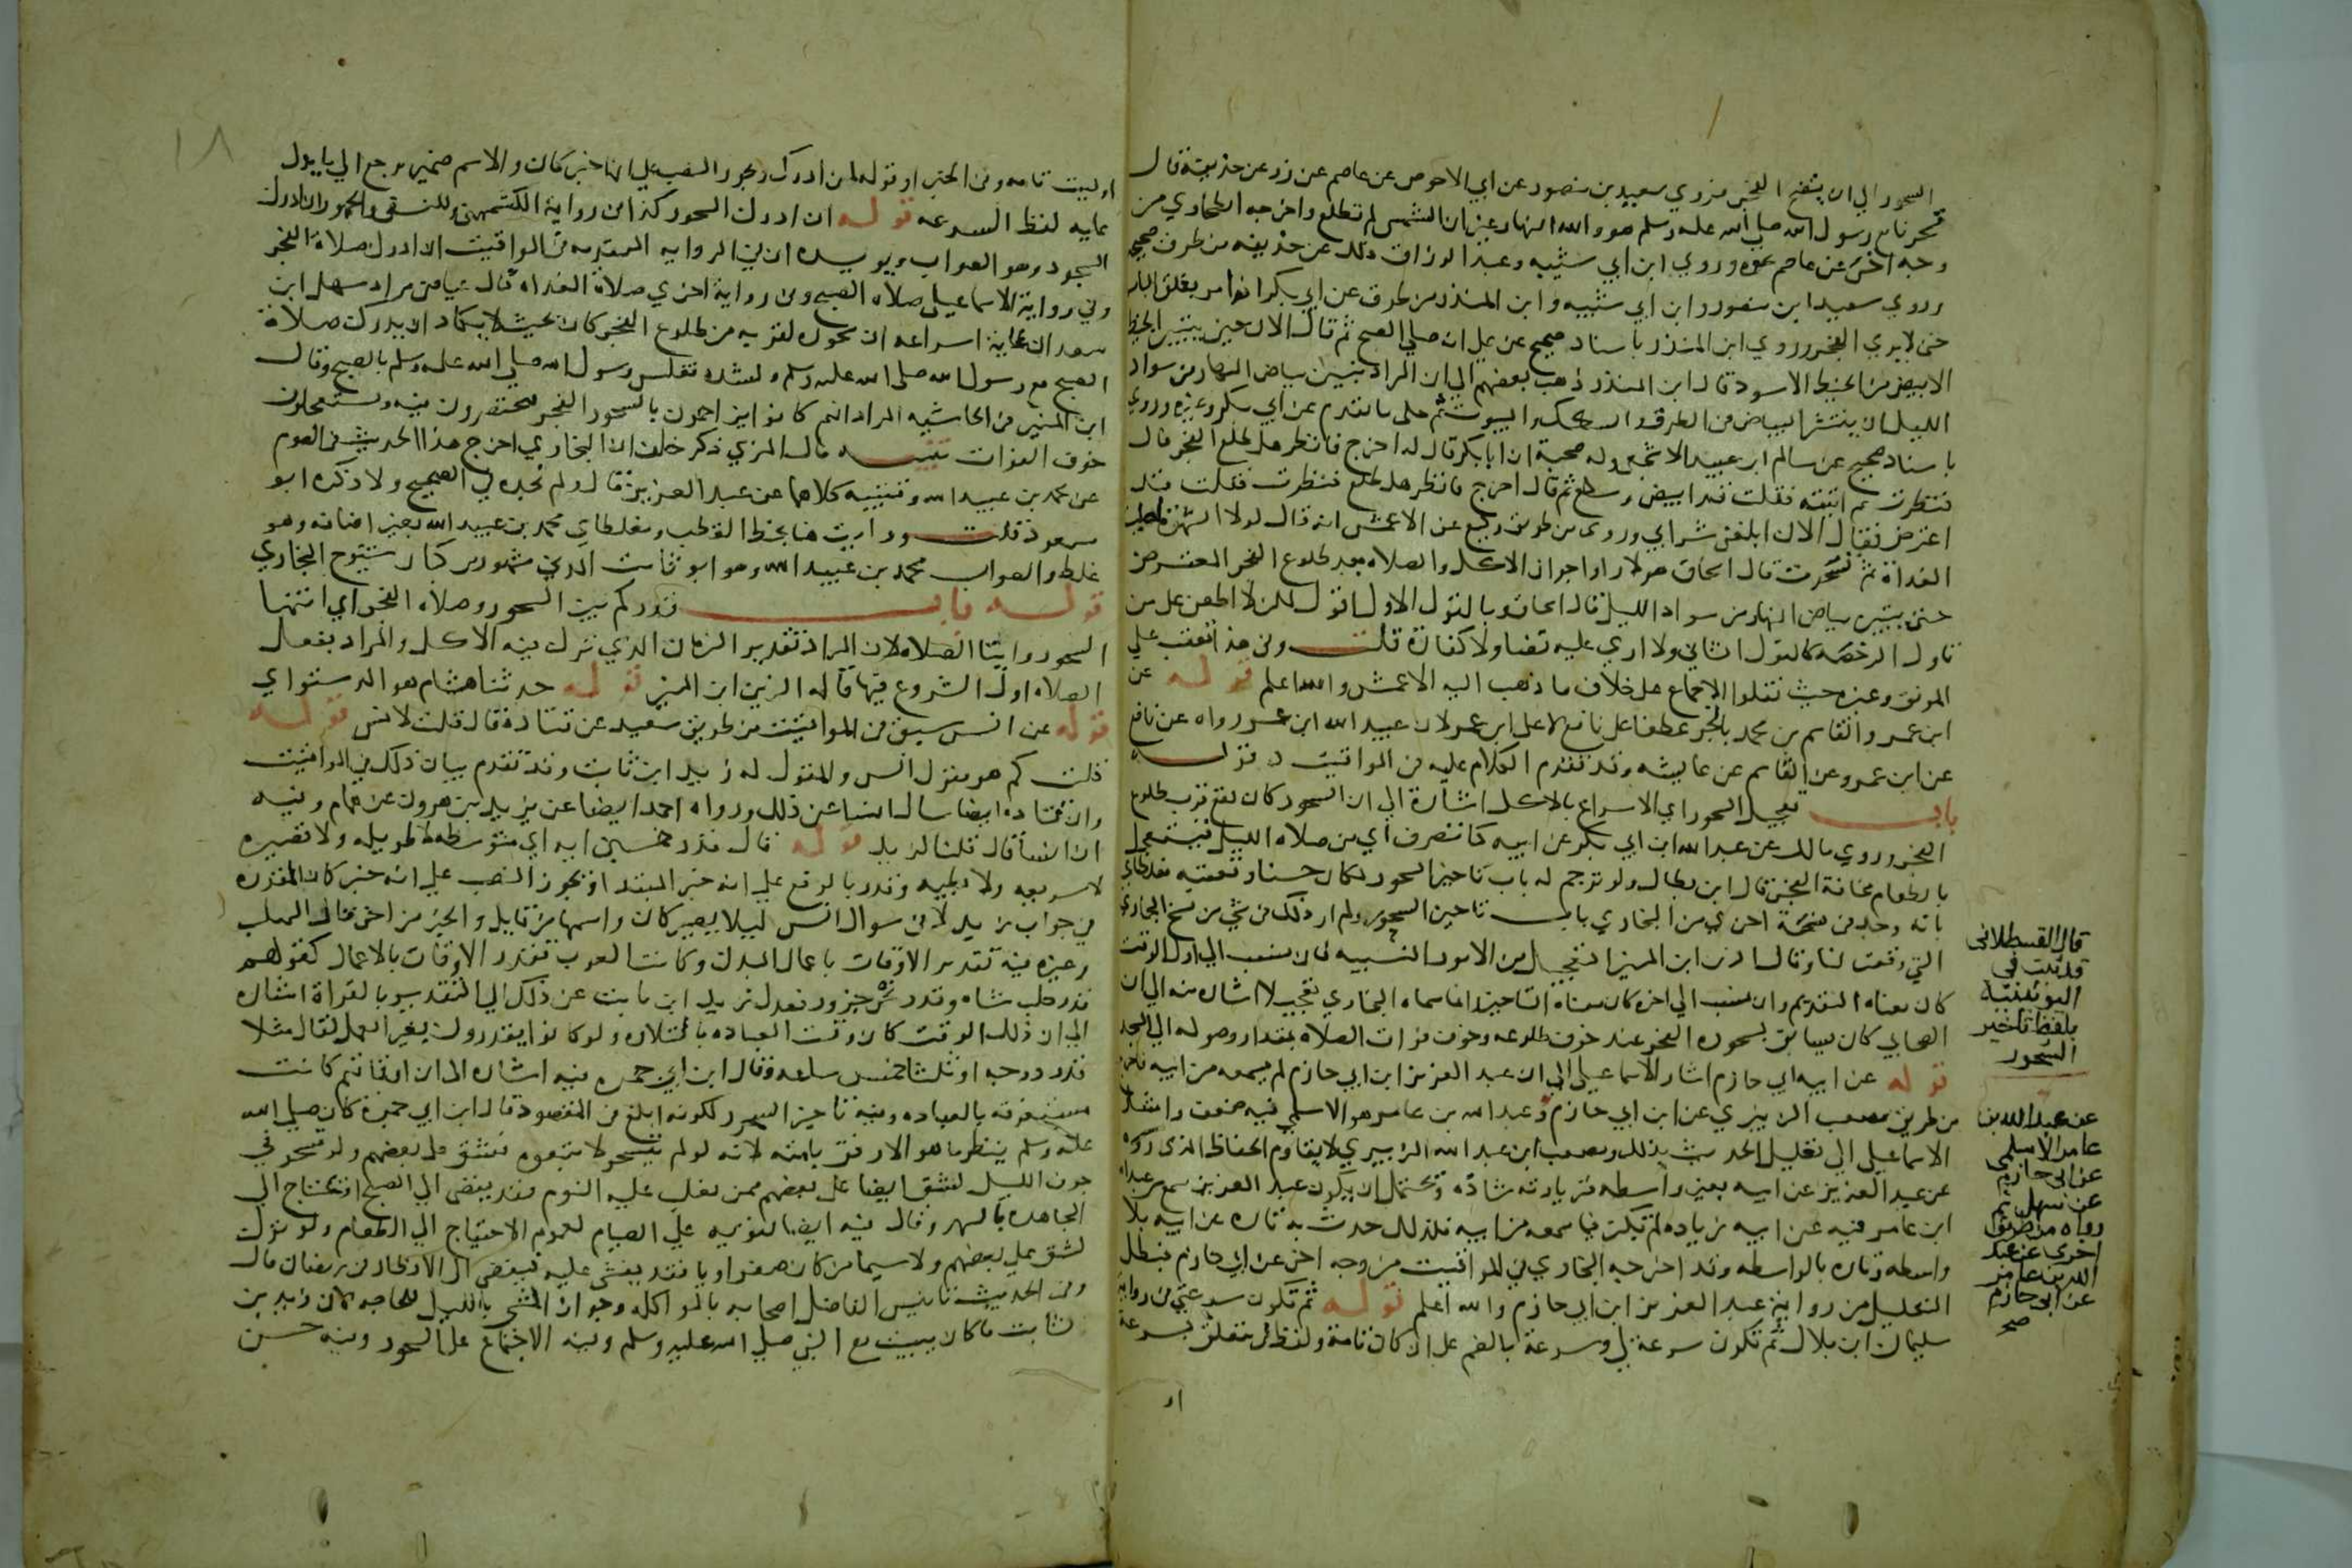 السحور الي ان يتضح الفجر فروي سعيد بن منصور عن ابي الاحوص عن عاصم عن زر عن حذيفة قال
تسحرنا مع رسول الله صلي الله عليه وسلم هو والله النهار غير ان الشمس لم تطلع واخرجه الطحاوي من
وجه اخر عن عاصم نحوه وروي ابن ابي شيبه وعبد الرزاق ذلك عن حذيفه من طرق صحيحة
وروي سعيد ابن منصور وابن ابي شيبه وابن المنذر من طرق عن ابي بكر انه امر بغلق الباب
حتى لا يري الفجر وروي ابن المنذر باسناد صحيح عن علي انه صلي الصبح ثم قال الان حين يتبين الخيط
الابيض من الخيط الاسود قال ابن المنذر ذهب بعضهم الي ان المراد بتبين بياض النهار من سواد
الليل ان ينتشر البياض في الطرق والسكك والبيوت ثم حكى ما تقدم عن ابي بكر وغيره وروي
باسناد صحيح عن سالم ابن عبيد الاشجعي وله صحبة ان ابا بكر قال له اخرج فانظر هل طلع الفجر قال
فنظرت ثم اتيته فقلت قد ابيض وسطع ثم قال اخرج فانظر هل طلع فنظرت فقلت قد
اعترض فقال الان ابلغني شرابي وروى من طريق وكيع عن الاعمش انه قال لولا الشهرة لصليت
الغداة ثم تسحرت قال اسحاق هولاء راوا جواز الاكل والصلاه بعد طلوع الفجر المعترض
حتى يتبين بياض النهار من سواد الليل قال اسحاق وبالقول الاول اقول لكن لا اطعن على من
تاول الرخصه كالقول الثاني ولا اري عليه قضا ولا كفارة قلت وفي هذا تعقب علي
الموفق وغيره حيث نقلوا الاجماع على خلاف ما ذهب اليه الاعمش والله اعلم قوله عن
ابن عمر والقاسم بن محمد بالجر عطفا على نافع لا على ابن عمر لان عبيد الله ابن عمر رواه عن نافع
عن ابن عمر وعن القاسم عن عايشه وقد تقدم الكلام عليه في المواقيت قوله
باب تعجيل السحور اي الاسراع بالاكل اشارة الي ان السحور كان يقع قرب طلوع
الفجر وروي مالك عن عبد الله ابن ابي بكر عن ابيه كنا ننصرف اي من صلاه الليل فنستعجل
بالطعام مخافة الفجر قال ابن بطال ولو ترجم له باب تاخير السحور لكان حسنا وتعقبه مغلطاي
بانه وجد في نسخة اخرى من البخاري باب تاخير السحور ولم ار ذلك في شي من نسخ البخاري
التي وقعت لنا وقال الزين ابن المنير التعجيل من الامور النسبيه فان نسب الي اول الوقت
كان معناه التقديم وان نسب الي اخره كان معناه التاخير وانما سماه البخاري تعجيلا اشاره منه الي ان
الصحابي كان يسابق بسحوره الفجر عند خوف طلوعه وخوف فوات الصلاه بمقدار وصوله الي المسجد
قوله عن ابيه ابي حازم اشار الاسماعيلي الي ان عبد العزيز ابن ابي حازم لم يسمعه من ابيه فاخرجه
من طريق مصعب الزبيري عن ابن ابي حازم وعبد الله بن عامر هو الاسلمي فيه ضعف واشار
الاسماعيلي الي تعليل الحديث بذلك ومصعب ابن عبد الله الزبيري لا يقاوم الحفاظ الذي رووه
عن عبد العزيز عن ابيه بغير واسطه فزيادته شاذه ويحتمل ان يكون عبد العزيز سمع من عبد الله
ابن عامر فيه عن ابيه زياده لم تكن فيما سمعه من ابيه فلذلك حدث به تاره عن ابيه بلا
واسطه وتاره بالواسطه وقد اخرجه البخاري في المواقيت من وجه اخر عن ابي حازم فبطل
التعليل من رواية عبد العزيز ابن ابي حازم والله اعلم قوله ثم تكون سرعتي في رواية
سليمان ابن بلال ثم تكون سرعة بي وسرعة بالضم على ان كان تامة ولفظ بي متعلق بسرعة
او
قال القسطلاني
قد ثبت في
اليونينية
بلفظ تاخير
السحور
عن عبد الله بن
عامر الاسلمي
عن ابي حازم
عن سهل ثم
رواه من طريق
اخرى عن عبد
الله بن عامر
عن ابي حازم
صح
١٨
او ليست تامه وفي الخبر او قوله ان ادرك ويجوز النصب علي انها خبر كان والاسم ضمير يرجع الي ما يدل
عليه لفظ السرعه قوله ان ادرك السحور كذا في رواية الكشميهني وللنسفي والجمهور ان ادرك
السجود وهو الصواب ويويده ان في الروايه المتقدمه في المواقيت ان ادرك صلاة الفجر
وفي رواية الاسماعيلي صلاه الصبح وفي رواية اخري صلاة الغداه قال عياض مراد سهل ابن
سعد ان غاية اسراعه ان سحوره لقربه من طلوع الفجر كان بحيث لا يكاد ان يدرك صلاة
الصبح مع رسول الله صلى الله عليه وسلم ولشده تغليس رسول الله صلي الله عليه وسلم بالصبح وقال
ابن المنير في الحاشيه المراد انهم كانوا يزاحمون بالسحور الفجر فيختصرون فيه ويستعجلون
خوف الفوات تنبيه قال المزي ذكر خلف ان البخاري اخرج هذا الحديث في الصوم
عن محمد بن عبيد الله وقتيبه كلاهما عن عبد العزيز قال ولم نجده في الصحيح ولا ذكره ابو
مسعود قلت ورايت هنا بخط القطب ومغلطاي محمد بن عبيد الله بغير اضافه وهو
غلط والصواب محمد بن عبيد الله وهو ابو ثابت المدني مشهور من كبار شيوخ البخاري
قوله باب قدر كم بين السحور وصلاه الفجر اي انتها
السحور وابتدا الصلاه لان المراد تقدير الزمان الذي ترك فيه الاكل والمراد بفعل
الصلاه اول الشروع فيها قاله الزين ابن المنير قوله حدثنا هشام هو الدستواي
قوله عن انس سبق في المواقيت من طريق سعيد عن قتادة قال قلت لانس قوله
قلت كم هو مقول انس والمقول له زيد ابن ثابت وقد تقدم بيان ذلك في المواقيت
وان قتاده ايضا سال انسا عن ذلك ورواه احمد ايضا عن يزيد بن هرون عن همام وفيه
ان انسا قال قلنا لزيد قوله قال قدر خمسين ايه اي متوسطه لا طويله ولا قصيره
لا سريعه ولا بطيه وقدر بالرفع علي انه خبر المبتدا ويجوز النصب علي انه خبر كان المقدره
في جواب زيد لا في سوال انس ليلا يصير كان واسمها من قايل والخبر من اخر قال المهلب
وغيره فيه تقدير الاوقات باعمال البدن وكانت العرب تقدر الاوقات بالاعمال كقولهم
قدر حلب شاه وقدر نحر جزور فعدل زيد ابن ثابت عن ذلك الي التقدير بالقراة اشاره
الي ان ذلك الوقت كان وقت العباده بالتلاوه ولو كانوا يقدرون بغير العمل لقال مثلا
قدر درجه او ثلث خمس ساعه وقال ابن ابي جمره فيه اشاره الي ان اوقاتهم كانت
مستغرقه بالعباده وفيه تاخير السحور لكونه ابلغ في المقصود قال ابن ابي جمرة كان صلي الله
عليه وسلم ينظر ما هو الارفق بامته لانه لو لم يتسحر لاتبعوه فشق على بعضهم ولو تسحر في
جوف الليل لشق ايضا على بعضهم ممن يغلب عليه النوم فقد يفضي الي ترك الصبح او يحتاج الي
المجاهده بالسهر وقال فيه ايضا تقويه علي الصيام لعموم الاحتياج الي الطعام ولو ترك
لشق علي بعضهم ولا سيما من كان صفراويا فقد يغشى عليه فيفضي الي الافطار في رمضان قال
وفي الحديث تانيس الفاضل اصحابه بالمواكله وجواز المشي بالليل للحاجه لان زيد بن
ثابت ما كان يبيت مع النبي صلي الله عليه وسلم وفيه الاجتماع على السحور وفيه حسن